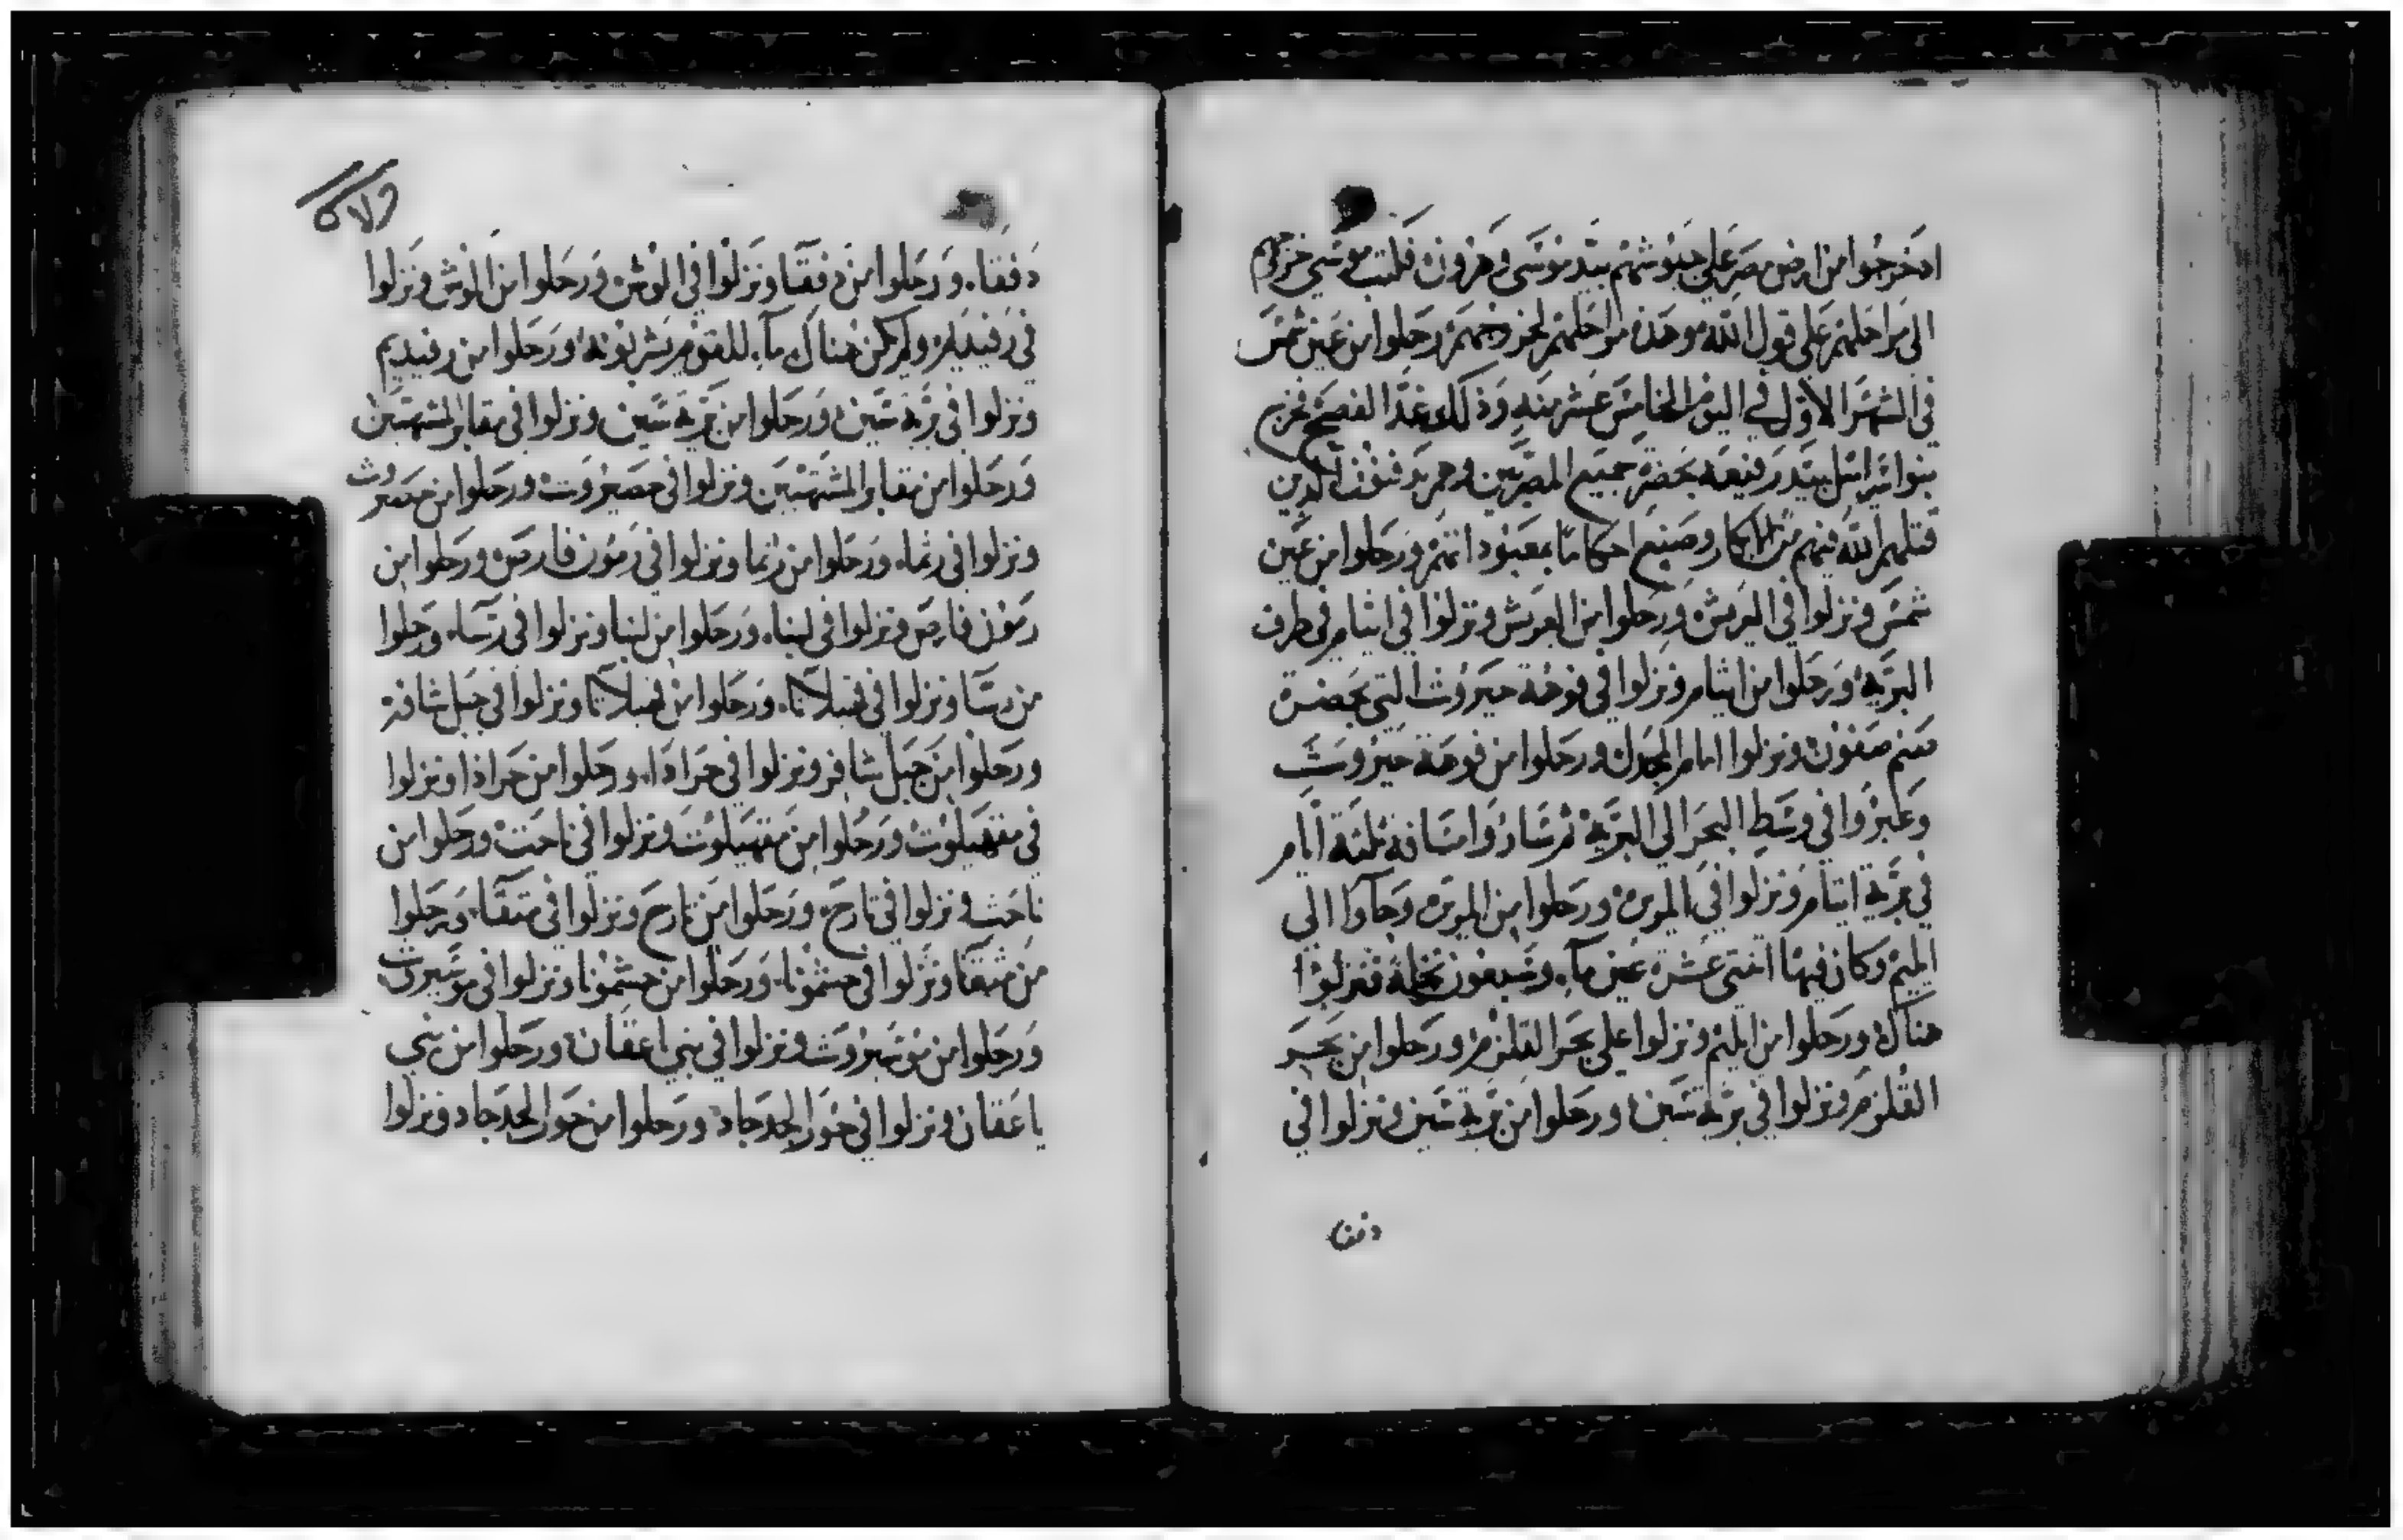 اذ خرجوا من ارض مصر على جيوشهم بيد موسى وهرون فكتب موسى خروجهم
الى مراحلهم على قول الله وهذه مراحلهم لخروجهم رحلوا من عين شمس
في الشهر الاول في اليوم الخامس عشر منه وذلك غد الفصح خرج
بنوا اسرائيل بيد رفيعه بحضرة جميع المصريين وهم يدفنون الذين
قتلهم الله منهم من الابكار وصنع احكاما بمعبوداتهم ورحلوا من عين
شمس ونزلوا في العريش ورحلوا من العريش ونزلوا في ايثام في طرف
البرية ورحلوا من ايثام ونزلوا في فوهة حيروث التي بحضرة
صنم صفون ونزلوا امام المجدل ورحلوا من فوهة حيروث
وعبروا في وسط البحر الى البرية ثم ساروا مسافة ثلثة ايام
في برية ايثام ونزلوا في المرة ورحلوا من المرة وجاوا الى
ايليم وكان فيها اثنتى عشرة عين ماء وسبعون نخلة فنزلوا
هناك ورحلوا من ايليم ونزلوا على بحر القلزم ورحلوا من بحر
القلزم ونزلوا في برية سين ورحلوا من برية سين ونزلوا في
دفقا
دفقاء ورحلوا من دفقا ونزلوا في الوش ورحلوا من الوش ونزلوا
في رفيديم ولم يكن هناك ماء للقوم يشربونه ورحلوا من رفيديم
ونزلوا في برية سين ورحلوا من برية سين ونزلوا في مقابر المشتهين
ورحلوا من مقابر المشتهين ونزلوا في حصيروت ورحلوا من حصيروث
ونزلوا في رثماء ورحلوا من رثما ونزلوا في رمون فارص ورحلوا من
رمون فارص ونزلوا في لبناء ورحلوا من لبنا ونزلوا في رسا ورحلوا
من رسا ونزلوا في قهيلاثا ورحلوا من قهيلاثا ونزلوا في جبل شافر
ورحلوا من جبل شافر ونزلوا في حرادا ورحلوا من حرادا ونزلوا
في مقهيلوث ورحلوا من مقهيلوث ونزلوا في تاحث ورحلوا من
تاحث ونزلوا في تارح ورحلوا من تارح ونزلوا في متقا ورحلوا
من متقا ونزلوا في حشمونا ورحلوا من حشمونا ونزلوا في موسيروث
ورحلوا من موسيروث ونزلوا في بني اعقان ورحلوا من بني
ياعقان ونزلوا في حور الجدجاد ورحلوا من حور الجدجاد ونزلوا